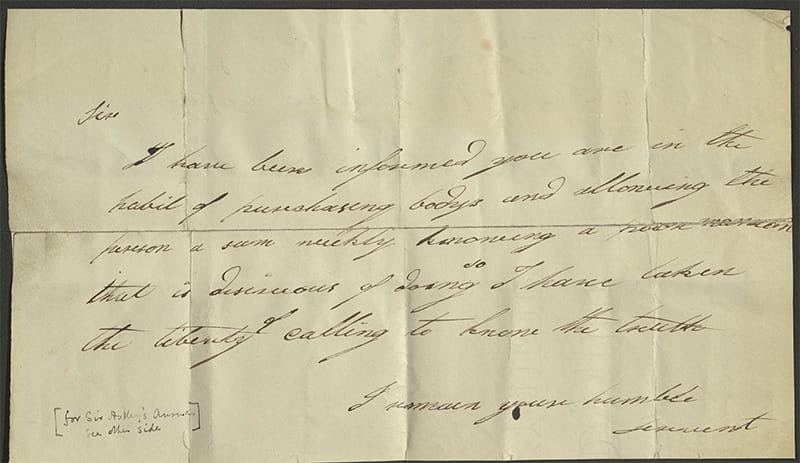 Sir
I have been informed you are in the
habit of purchasing bodys and allowing the
person a sum weekly knowing a poor woman
that is desireous of doing so I have taken
the liberty of calling to know the truth
I remain your humble
servent
[for Sir Astley's Answer
see other side]